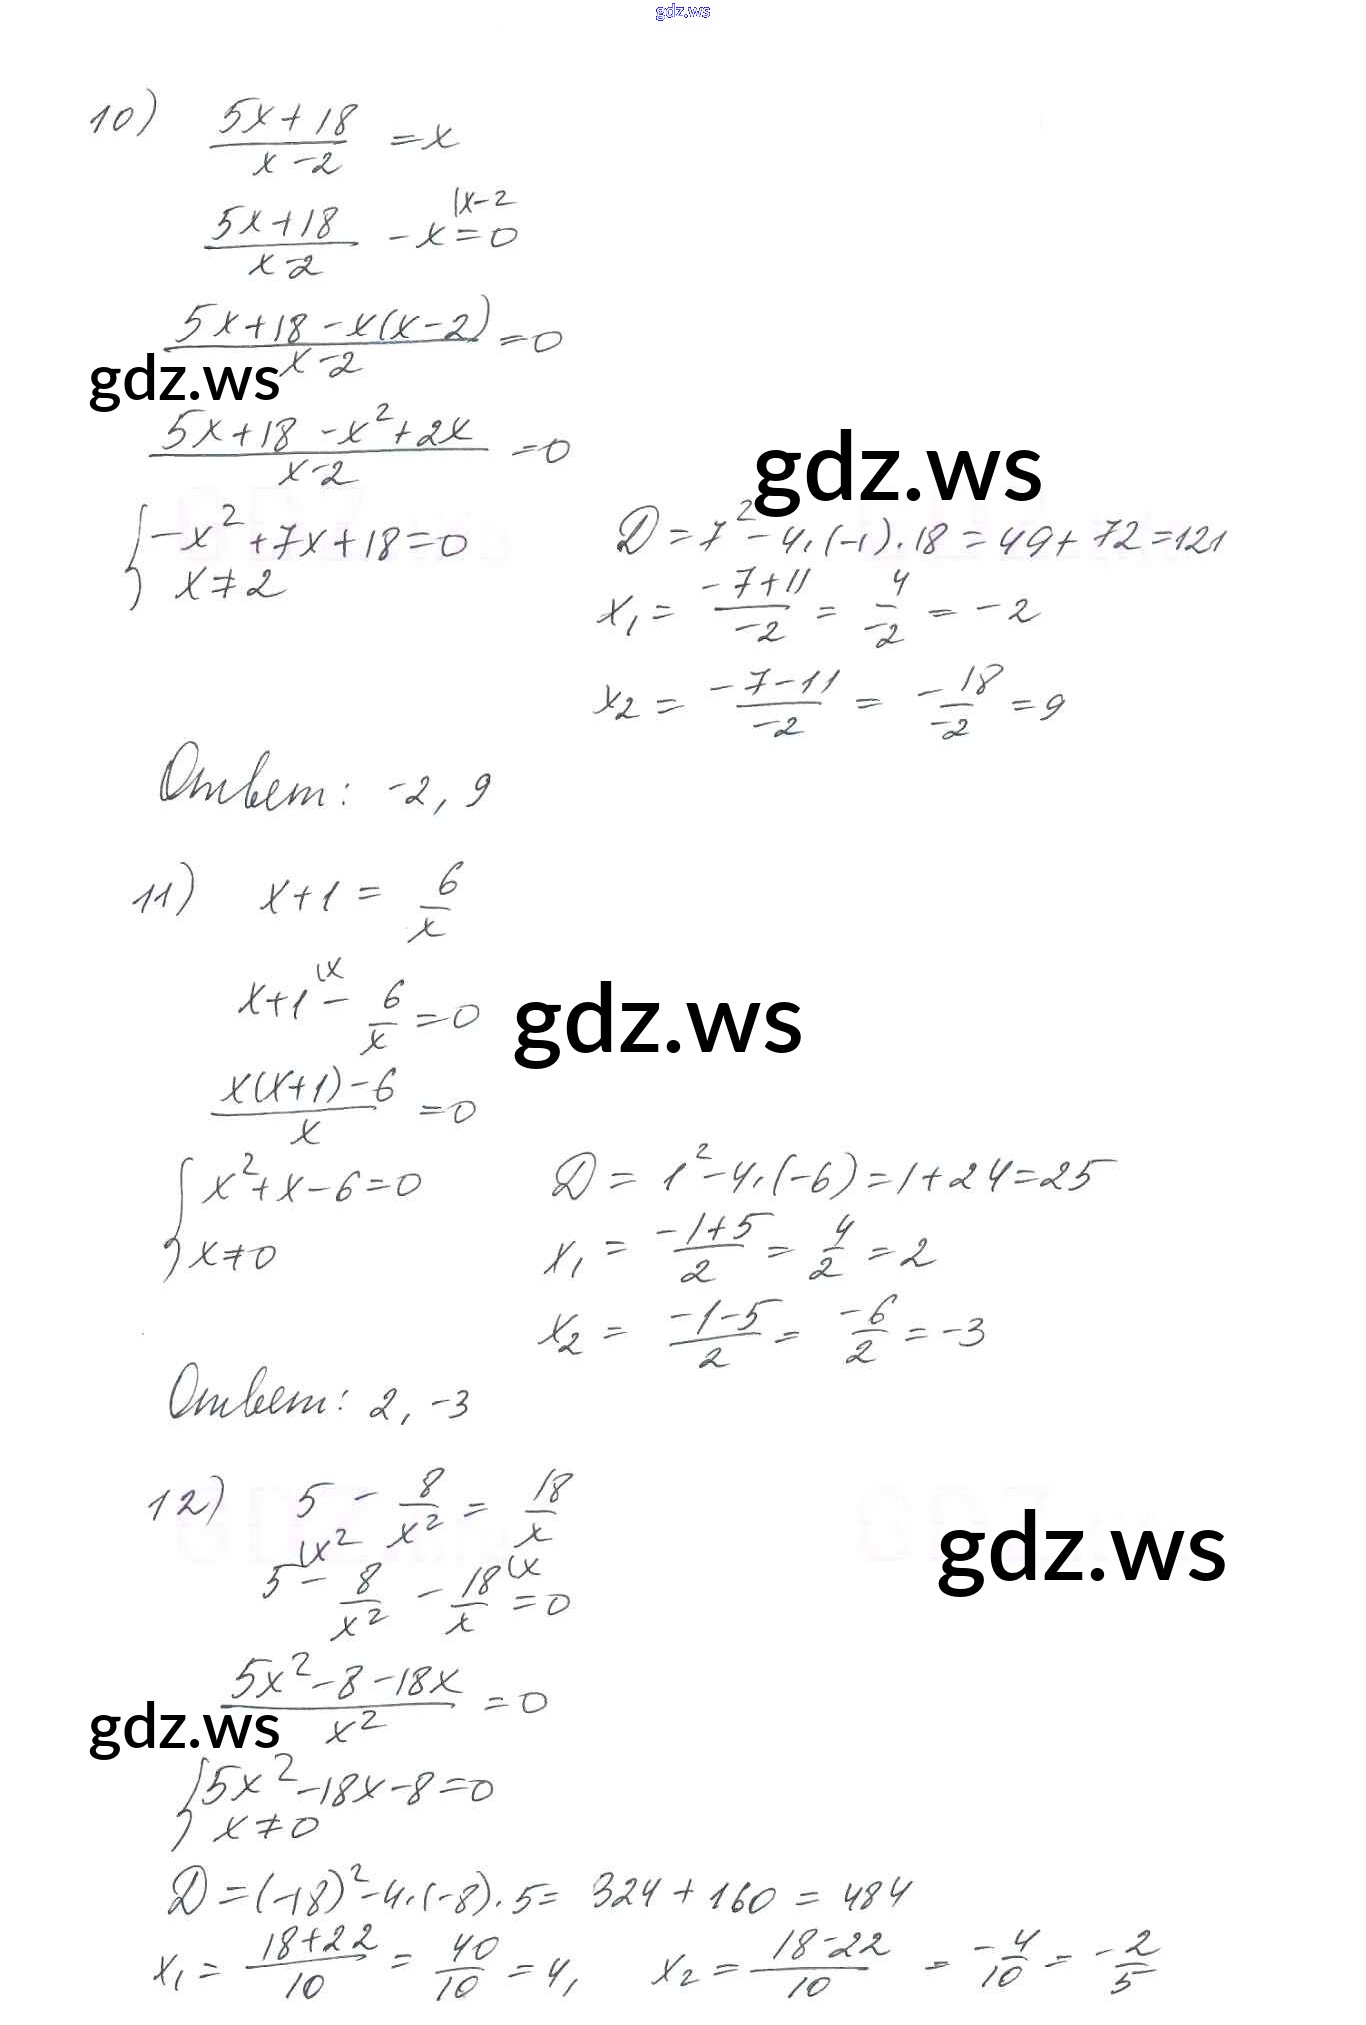 gdz.ws
10) (5x+18)/(x-2) = x
(5x+18)/(x-2) - x |x-2 = 0
(5x+18-x(x-2))/(x-2) = 0
gdz.ws
(5x+18-x²+2x)/(x-2) = 0
gdz.ws
{ -x²+7x+18=0
x≠2
D=7²-4·(-1)·18=49+72=121
x₁ = (-7+11)/(-2) = 4/(-2) = -2
x₂ = (-7-11)/(-2) = -18/-2 = 9
Ответ: -2, 9
11) x+1 = 6/x
x+1 |x - 6/x = 0
gdz.ws
(x(x+1)-6)/x = 0
{ x²+x-6=0
x≠0
D = 1²-4·(-6)=1+24=25
x₁ = (-1+5)/2 = 4/2 = 2
x₂ = (-1-5)/2 = -6/2 = -3
Ответ: 2, -3
12) 5 - 8/x² = 18/x
gdz.ws
5 |x² - 8/x² - 18/x |x = 0
(5x²-8-18x)/x² = 0
gdz.ws
{ 5x²-18x-8=0
x≠0
D=(-18)²-4·(-8)·5= 324+160=484
x₁ = (18+22)/10 = 40/10 = 4, x₂ = (18-22)/10 = -4/10 = -2/5